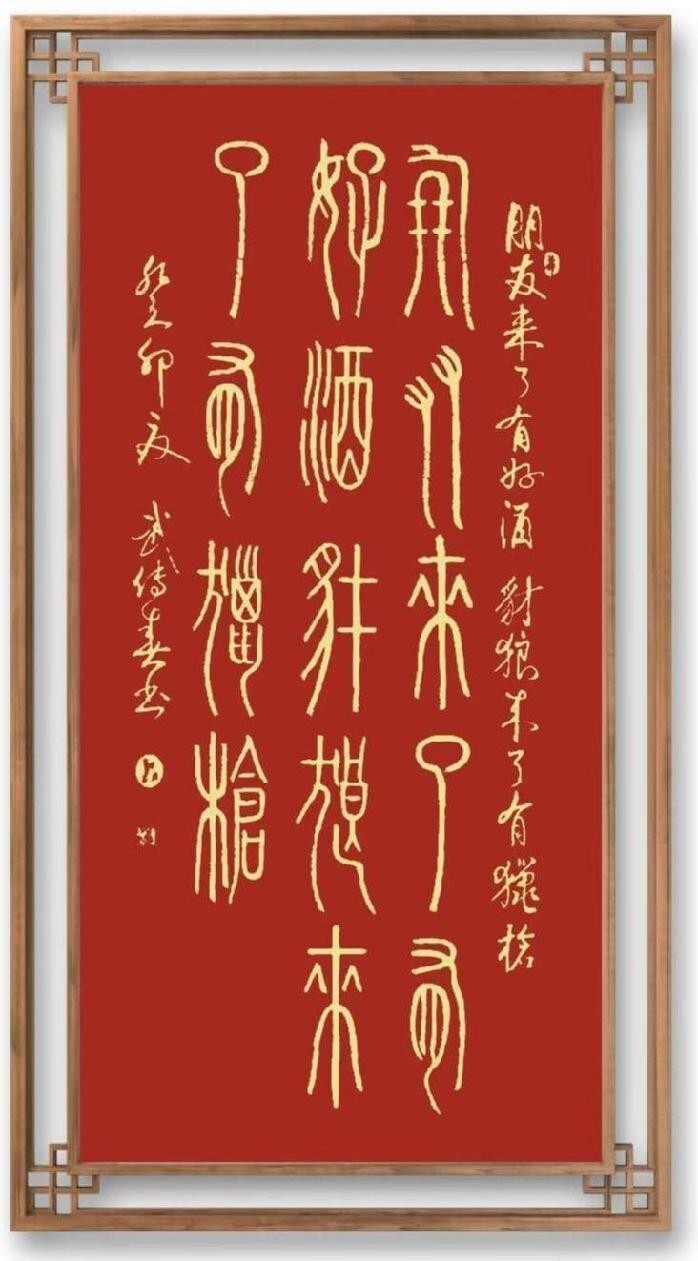 朋友来了有好酒 豺狼来了有獵槍
朋友來了有
好酒豺狼來
了有獵槍
癸卯夏 武傳春书